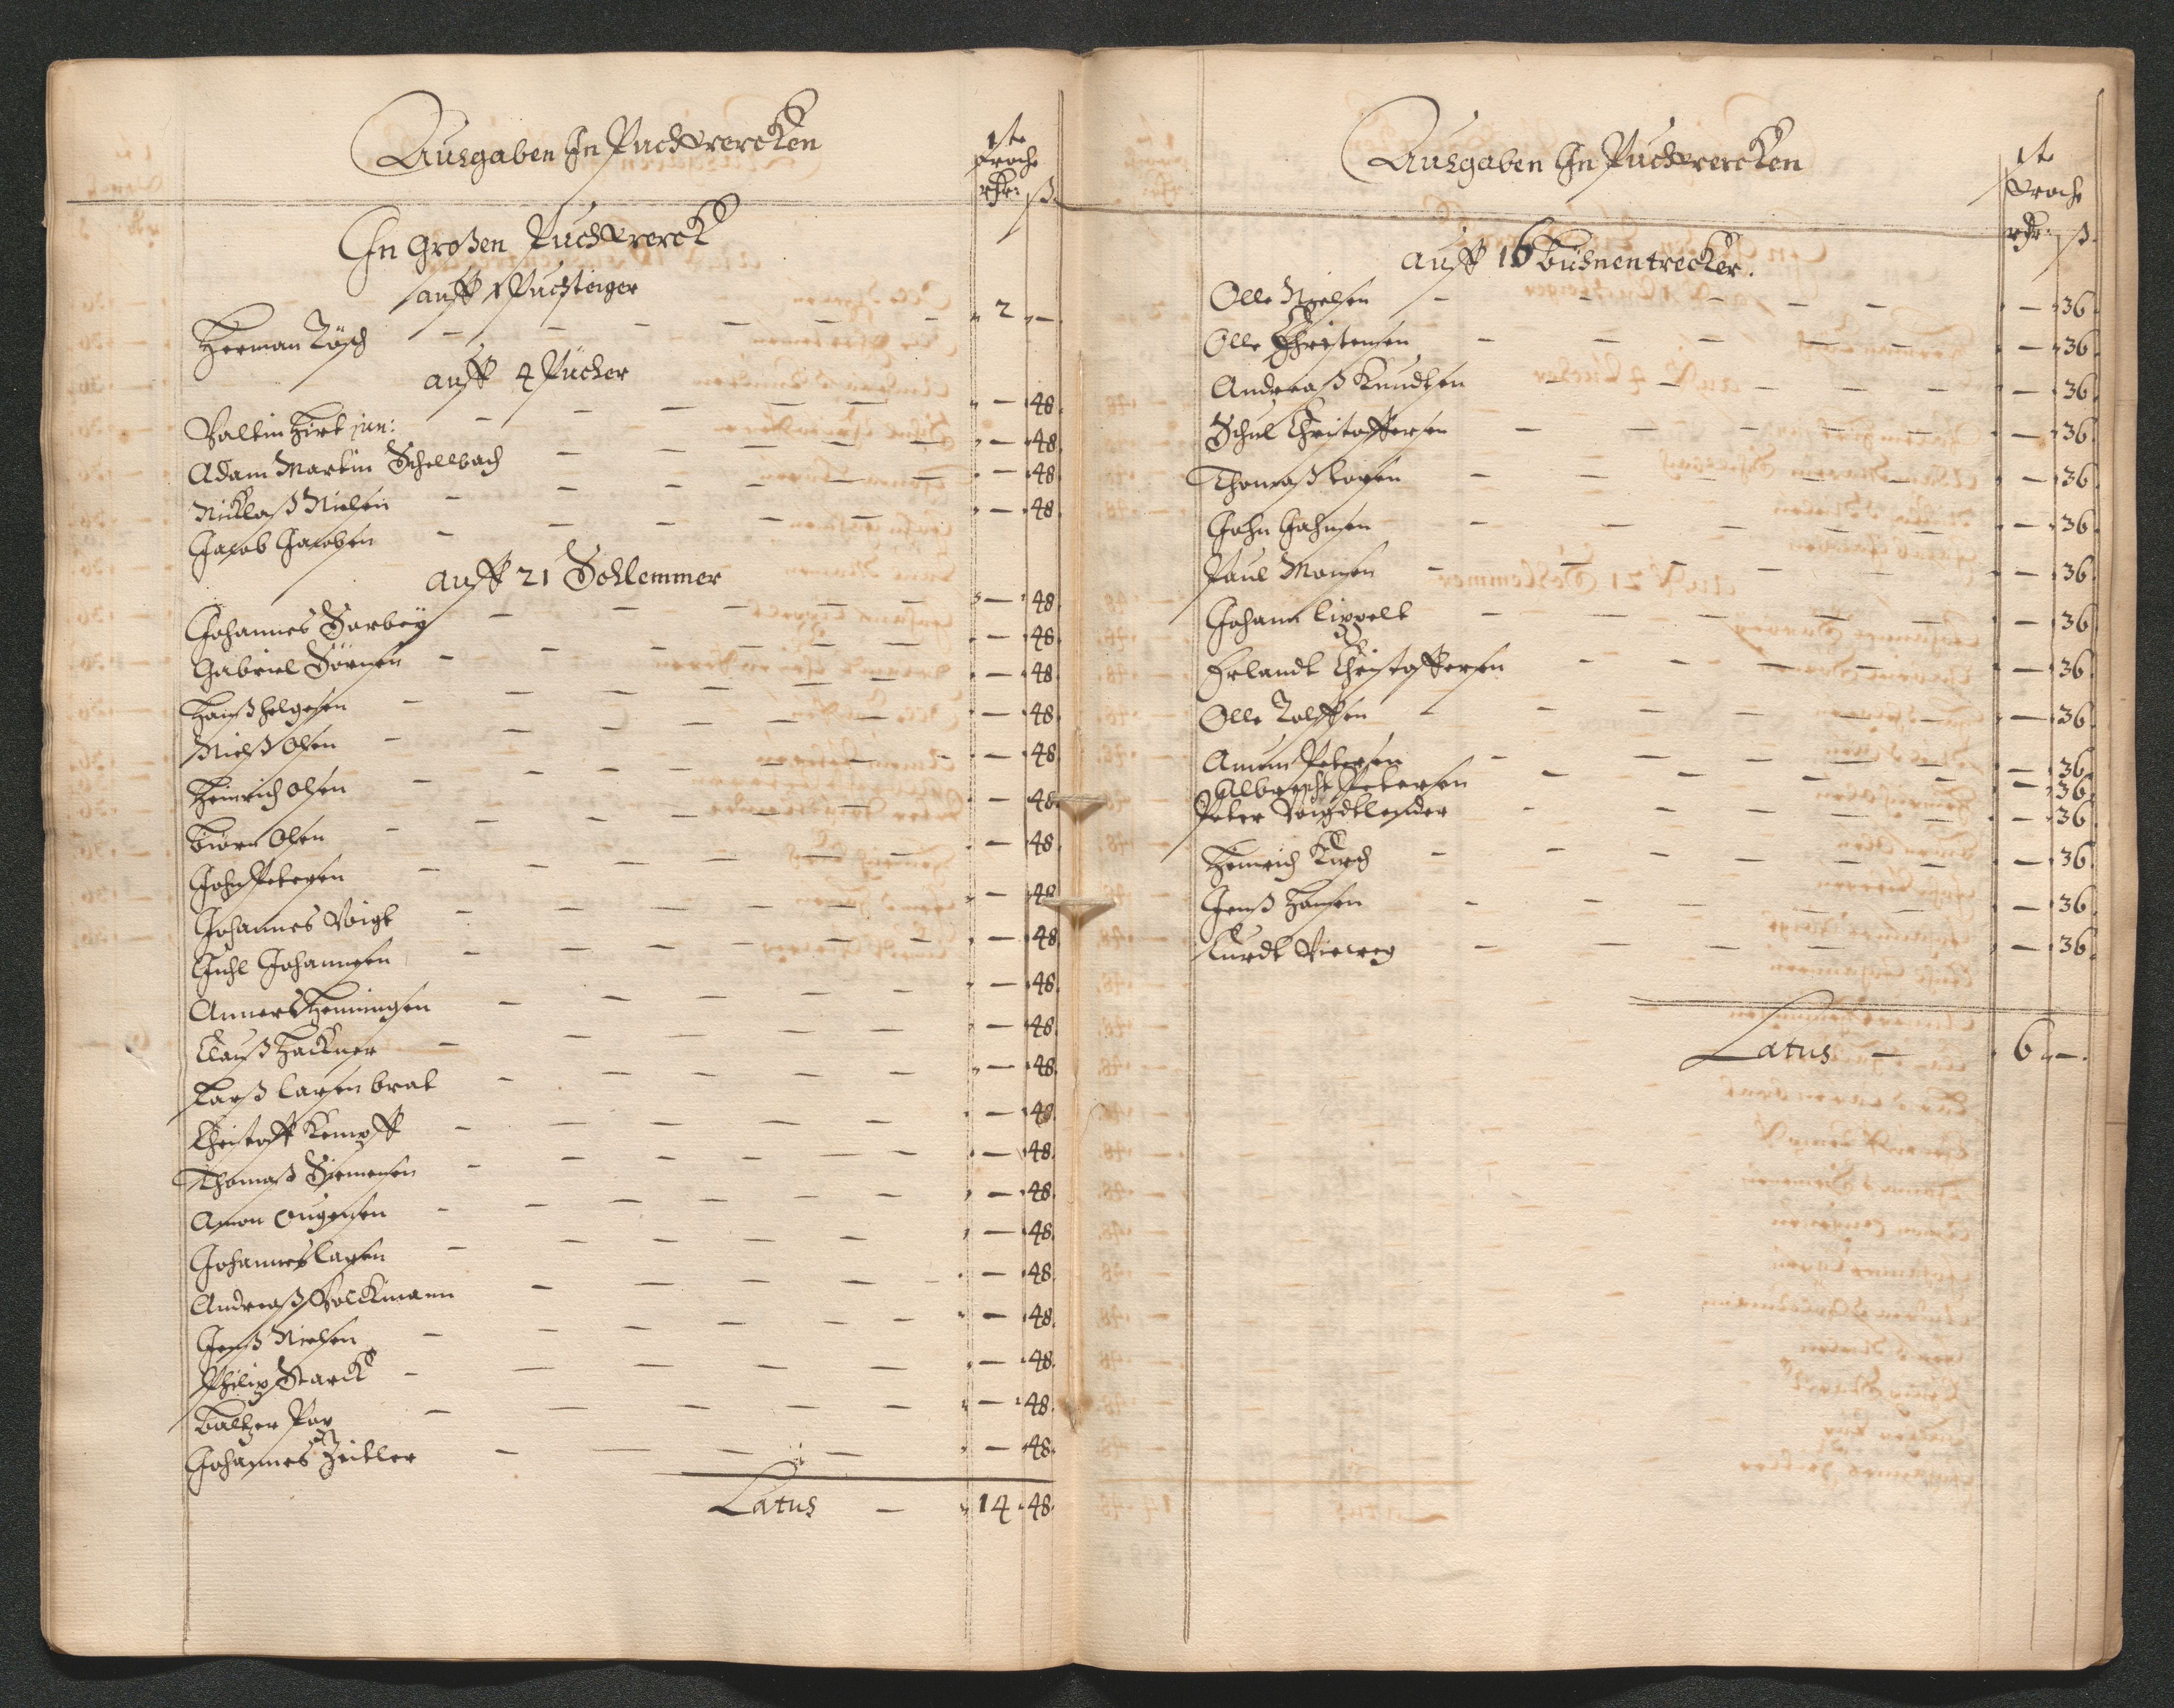 Ausgaben In Puchwercken
1te
Woche
rdr: ß
In Großen Puchwerck
auff 1 Puchsteiger
Herman Rösch - - - - - - 2 -
auff 4 Pücher
Valtin Hirt jun: - - - - - - 48
Adam Martin Schellbach - - - - - 48
Nicklaß Nielsen - - - - - - 48
Jacob Jacobsen - - - - - - 48
auff 21 Schlemmer
Johannes Sorbey - - - - - 48
Gabriel Sörnsen - - - - - - 48
Hanß Helgesen - - - - - - 48
Nielß Olsen - - - - - - 48
Heinrich Olsen - - - - - - 48
Biörn Olsen - - - - - - 48
John Petersen - - - - - - 48
Johannes Voigt - - - - - - 48
Juhl Johannesen - - - - - - 48
Anners Henningsen - - - - - 48
Clauß Hackner - - - - - 48
Larß Larsen brat - - - - - 48
Christoff Kempff - - - - - - 48
Thomaß Siemensen - - - - - - 48
Amon Ougensen - - - - - - 48
Johannes Larsen - - - - - - 48
Andreaß Volckmann - - - - - 48
Jenß Nielsen - - - - - - 48
Philip Starck - - - - - 48
Baltzer Pox - - - - - 48
Johannes Zeitler - - - - - 48
Latus - 14 48
Ausgaben In Puchwercken
1te
Woche
rdr: ß
auff 16 Bühnentrecker.
Olle Nielsen - - - - - - 36
Olle Christensen - - - - - - 36
Andreaß Knudtsen - - - - - 36
Schul Christoffersen - - - - - 36
Thomaß Larsen - - - - - - 36
John Johnsen - - - - - - 36
Paul Monsen - - - - - - 36
Johann Lippelt - - - - - - 36
Erlandt Christoffersen - - - - - 36
Olle Rolffsen - - - - - - 36
Amun Petersen - - - - - - 36
Albrecht Petersen - - - - - 36
Peter Voigdtlender - - - - - 36
Heinrich Kirch - - - - - - 36
Jenß Hansen - - - - - - 36
Curdt Vieweg - - - - - 36
Latus - 6 -